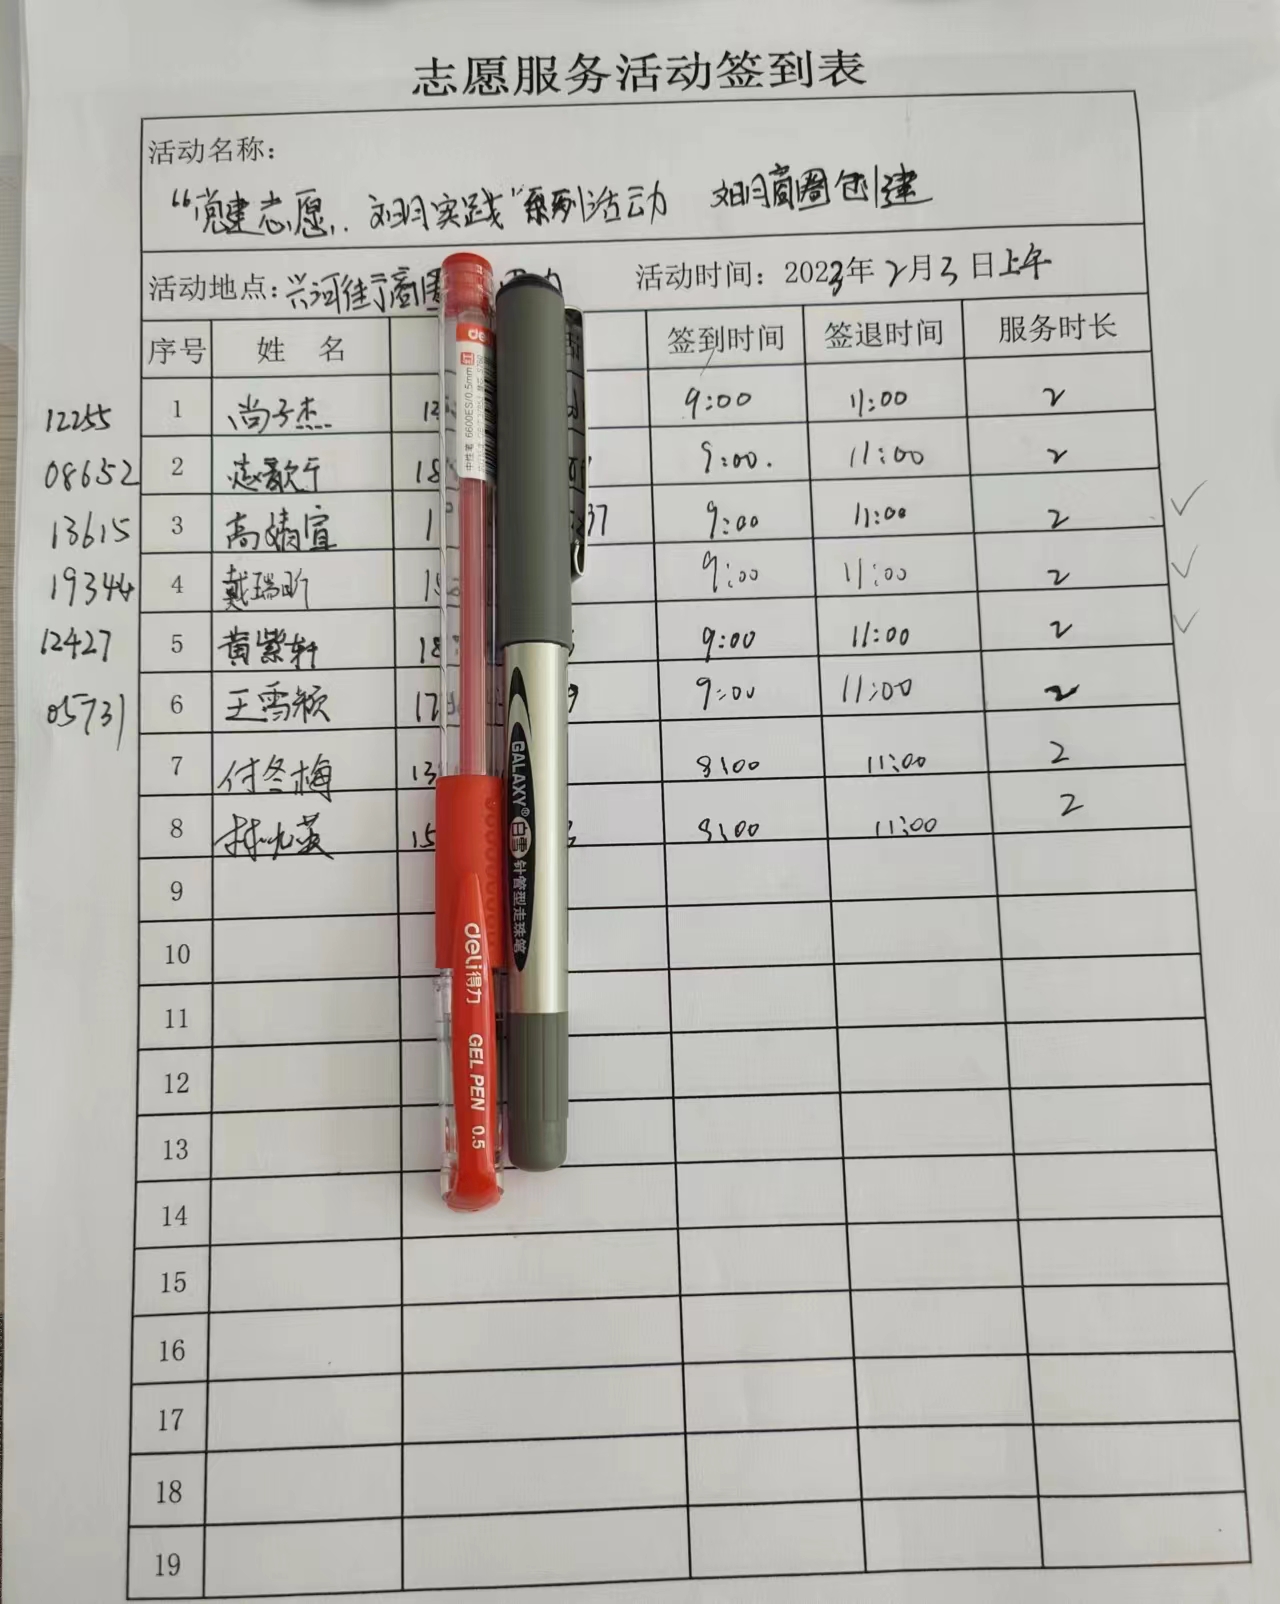 志愿服务活动签到表
活动名称：
“党建志愿..文明实践”系列活动 文明商圈创建
活动地点：兴河街商圈
活动时间：2023年2月3日上午
序号 姓名 话 签到时间 签退时间 服务时长
12255 1 尚子杰 9:00 11:00 2
08652 2 18 9:00. 11:00 2
13615 3 高婧宣 1 37 9:00 11:00 2 ✓
19344 4 戴瑞昕 9:00 11:00 2 ✓
12427 5 黄紫轩 18 9:00 11:00 2 ✓
05731 6 王雪颖 17 9 9:00 11:00 2
7 付冬梅 13 8:00 11:00 2
8 林 英 15 8:00 11:00 2
9
10
11
12
13
14
15
16
17
18
19
deli
中性笔 6600ES/0.5mm 红
deli得力 GEL PEN 0.5
GALAXY® 白雪 针管型走珠笔